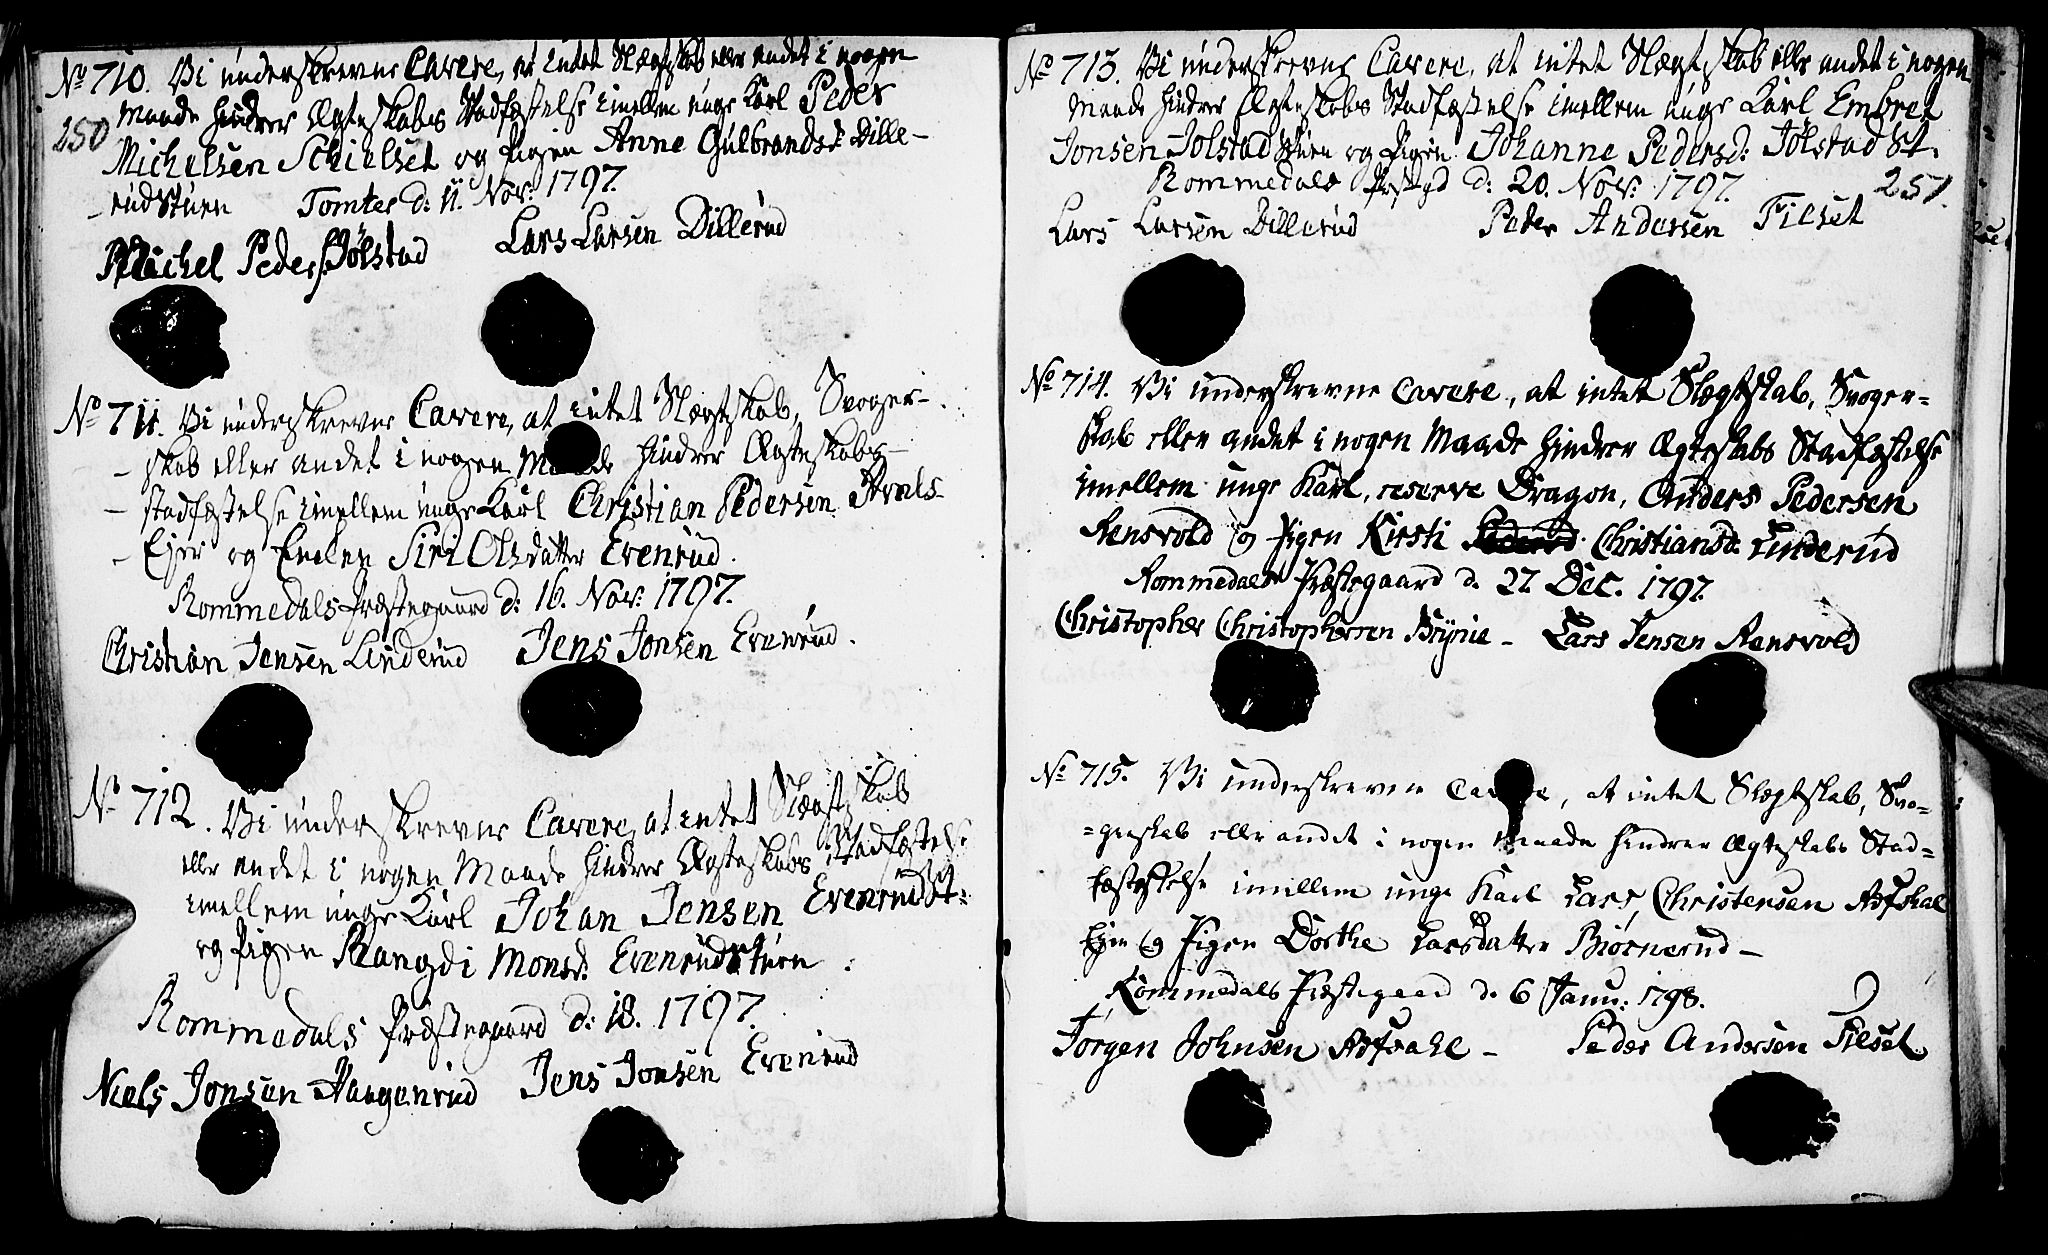 No 710. Vi underskrevne Cavere, at intet Slægtskab eller andet i nogen
250
Maade hindrer Ægteskabs Stadfæstelse imellem unge Karl Peder
Michelsen Schielset og Pigen Anne Gulbrandsd: Dille-
-rudstuen Tomter d: 11. Nov: 1797.
Michel Peders: Jölstad Lars Larsen Dillerud
No 711. Vi underskrevne Cavere, at intet Slægtskab, Svoger-
-skab eller andet i nogen Maade hindrer Ægteskabs-
-stadfæstelse imellem unge Karl Christian Pedersen Hvals-
-Ejer og Enken Siri Olsdatter Evenrud.
Rommedals Præstegaard d: 16. Nov: 1797.
Christian Jensen Linderud Jens Jonsen Evenrud.
No 712. Vi underskrevne Cavere, at intet Slægtskab
eller andet i nogen Maade hindrer Ægteskabs Stadfæstelse
imellem unge Karl Johan Jensen Evenrudst:
og Pigen Rangdi Monsd: Evenrudstuen
Rommedals Præstegaard d: 18. 1797.
Niels Jonsen Haagenrud Jens Jonsen Evenrud
No 713. Vi underskrevne Cavere, at intet Slægtskab eller andet i nogen
Maade hindrer Ægteskabs Stadfæstelse imellem unge Karl Embret
Jonsen Jolstadstuen og Pigen Johanne Pedersd: Jölstadst.
Rommedals Præstgd d: 20. Nov: 1797. 251.
Lars Larsen Dillerud Peder Andersen Filset
No 714. Vi underskrevne Cavere, at intet Slægtskab, Svoger=
skab eller andet i nogen Maade hindrer Ægteskabs Stadfæstelse
imellem unge Karl, reserve Dragon, Anders Pedersen
Aensvold og Pigen Kirsti Christiansd: Linderud
Rommedals Præstegaard d. 27 Dec. 1797.
Christopher Christophersen Brynie - Lars Jensen Aensvold
No 715. Vi underskrevne Cavere, at intet Slægtskab, Svo=
=gerskab eller andet i nogen Maade hindrer Ægteskabs Stad=
fæstelse imellem unge Karl Lars Christensen Adfskal
Ejer og Pigen Dorthe Larsdatter Biørnerud -
Rommedals Præstegaard d. 6 Janu: 1798.
Jørgen Johnsen Adfsahl - Peder Andersen Filset.